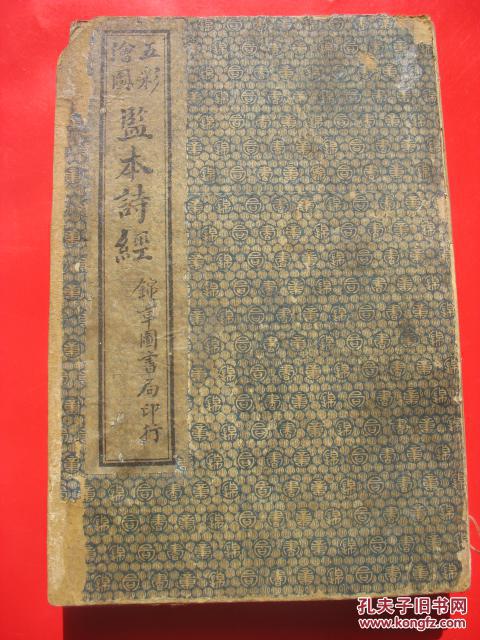 五彩
繪圖
監本詩經
錦章圖書局印行
孔夫子旧书网
www.kongfz.com